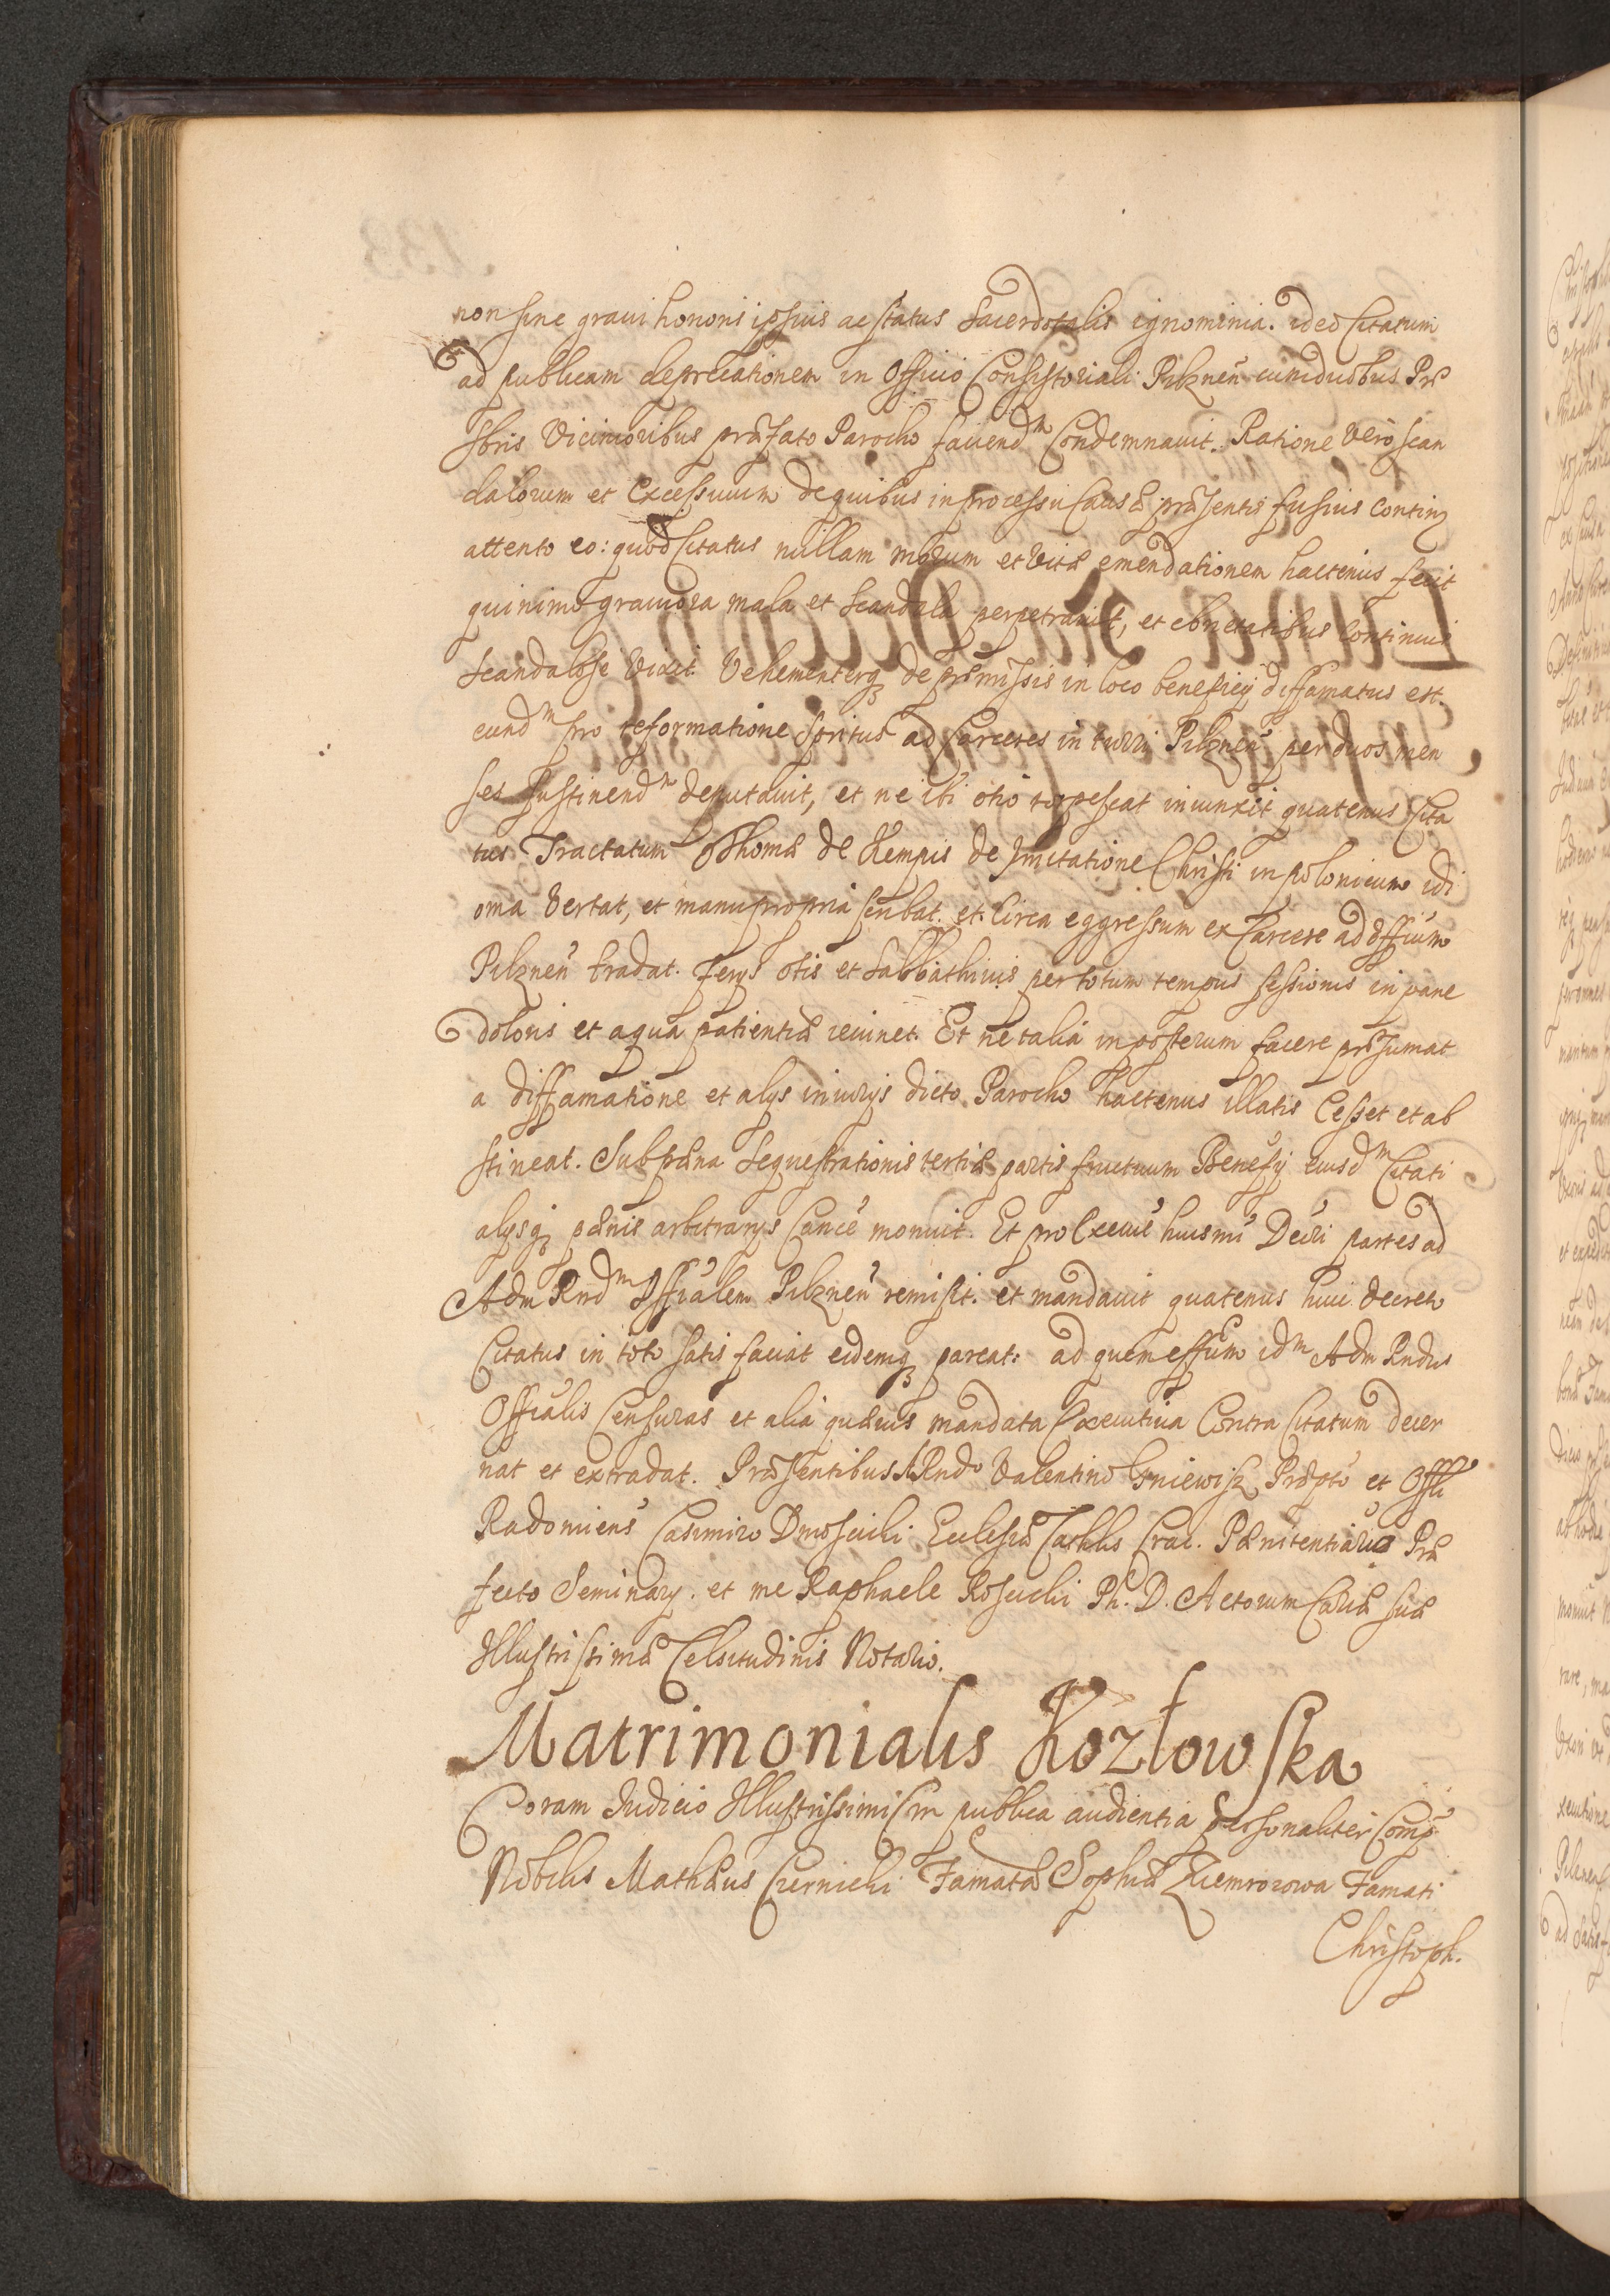 non sine graui honoris ipsius ac status Sacerdotalis ignominia. ideo Citatum
ad publicam deprecationem in Officio Consistoriali Pilznen̄ cum duobus Prę
sbris Vicinioribus præfato Parocho faciend͞m Condemnauit. Ratione Vero scan
dalorum et Excessuum de quibus in processu Causæ præsentis fusius contin
attento eo: quod Citatus nullam morum et Vitæ emendationem hactenus fecit
quinimo grauiora mala et Scandala perpetrauit, et ebrietatibus Continuis
Scandalose Vixit Vehementerq, de præmissis in loco beneficÿ diffamatus est.
eund͞m pro reformatione Spritus ad Carceres in turri Pilznen̄ per duos men
ses Sustinend͞m deputauit, et ne ibi otio torpescat iniunxit quatenus Cita
tus Tractatum Thomæ de Kempis de Imitatione Christi in polonicum idi
oma Vertat, et manu propria scribat. et Circa eggressum ex Carcere ad Officium
Pilznen̄ tradat. Ferÿs 6tis et Sabbathinis per totum tempus sessionis in pane
doloris et aqua patientiæ ieiunet. Et ne talia in posterum facere præsumat
a diffamatione et alÿs iniurÿs dicto Parocho hactenus illatis Cesset et ab
stineat. Sub pæna Sequestrationis tertiæ partis fructuum Beneficÿ eiusd͞m Citati
alÿsq, pænis arbitrarÿs Cance monuit. Et pro Execue huusmi Decri partes ad
Adm Rnd͞m Offialem Pilznen̄ remisit. et mandauit quatenus huic decreto
Citatus in toto satis faciat eidemq, pareat: ad quem effum id͞m Adm Rndus
Offialis Censuras et alia quæuis mandata Executiua Contra Citatum decer
nat et extradat. Præsentibus A Rndo Valentino Gniewisz Præpto et Offli
Radomien̄ Casimiro Dmoscicki Ecclesiæ Cathlis Crac. Pænitentiario Præ
fecto Seminarÿ. et me Raphaele Roscicki Ph. D. Actorum Curiæ Suæ
Illustrissimæ Celsitudinis Notario.
Matrimonialis Kozłowska
Coram Iudicio Illustrissimi Sm publica audientia personaliter Comp̄
Nobilis Mathæus Czernicki Famatæ Sophiæ Ziemrozowa Famati
Christoph.